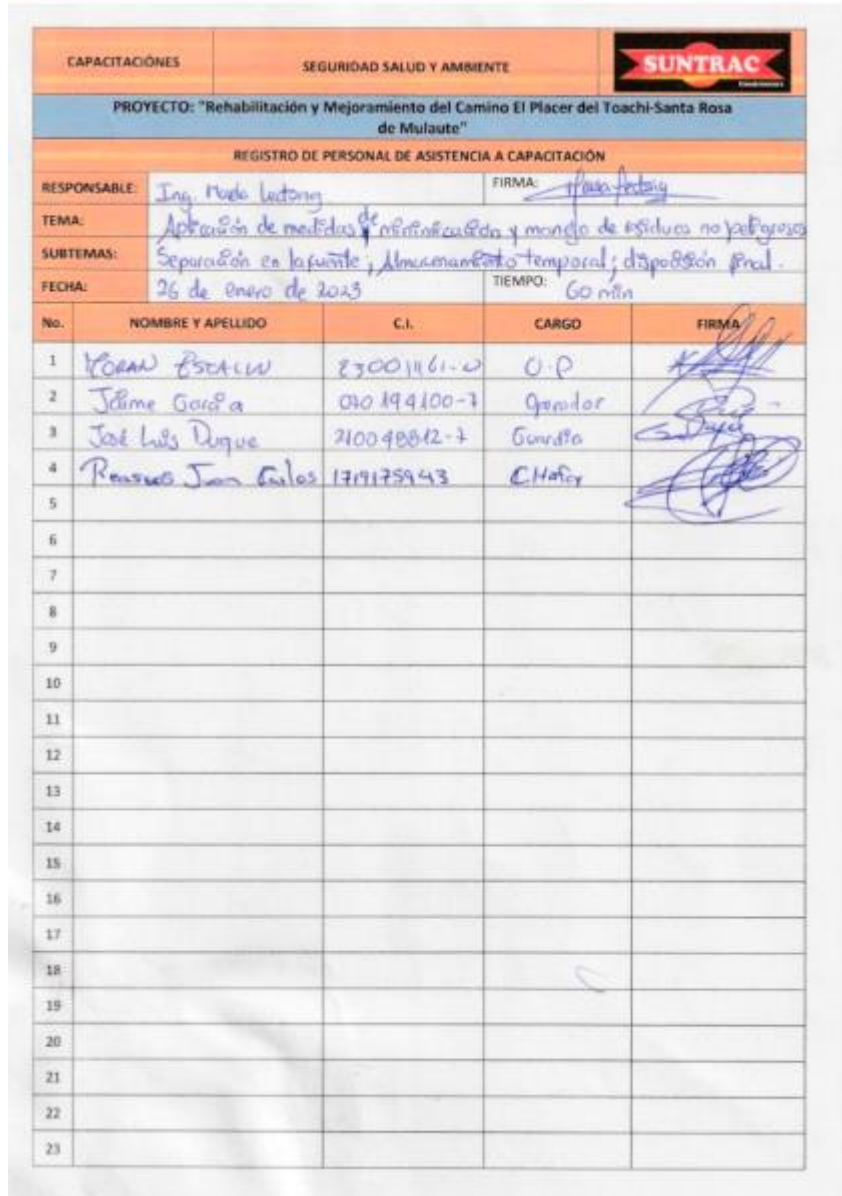 CAPACITACIÓNES
SEGURIDAD SALUD Y AMBIENTE
SUNTRAC
PROYECTO: "Rehabilitación y Mejoramiento del Camino El Placer del Toachi-Santa Rosa
de Mulaute"
REGISTRO DE PERSONAL DE ASISTENCIA A CAPACITACIÓN
RESPONSABLE: Ing. FIRMA:
TEMA: Aplicación de medidas de minimización y manejo de residuos no peligrosos
SUBTEMAS: Separación en la fuente; Almacenamiento temporal; disposición final.
FECHA: 26 de enero de 2023 TIEMPO: 60 min
No. NOMBRE Y APELLIDO C.I. CARGO FIRMA
1 MORAN ESTALIN O.P
2 Jaime García 070194100-7 Operador
3 José Luis Duque 210048812-7 Guardia
4 Juan Carlos 1719175943 CHofer
5
6
7
8
9
10
11
12
13
14
15
16
17
18
19
20
21
22
23